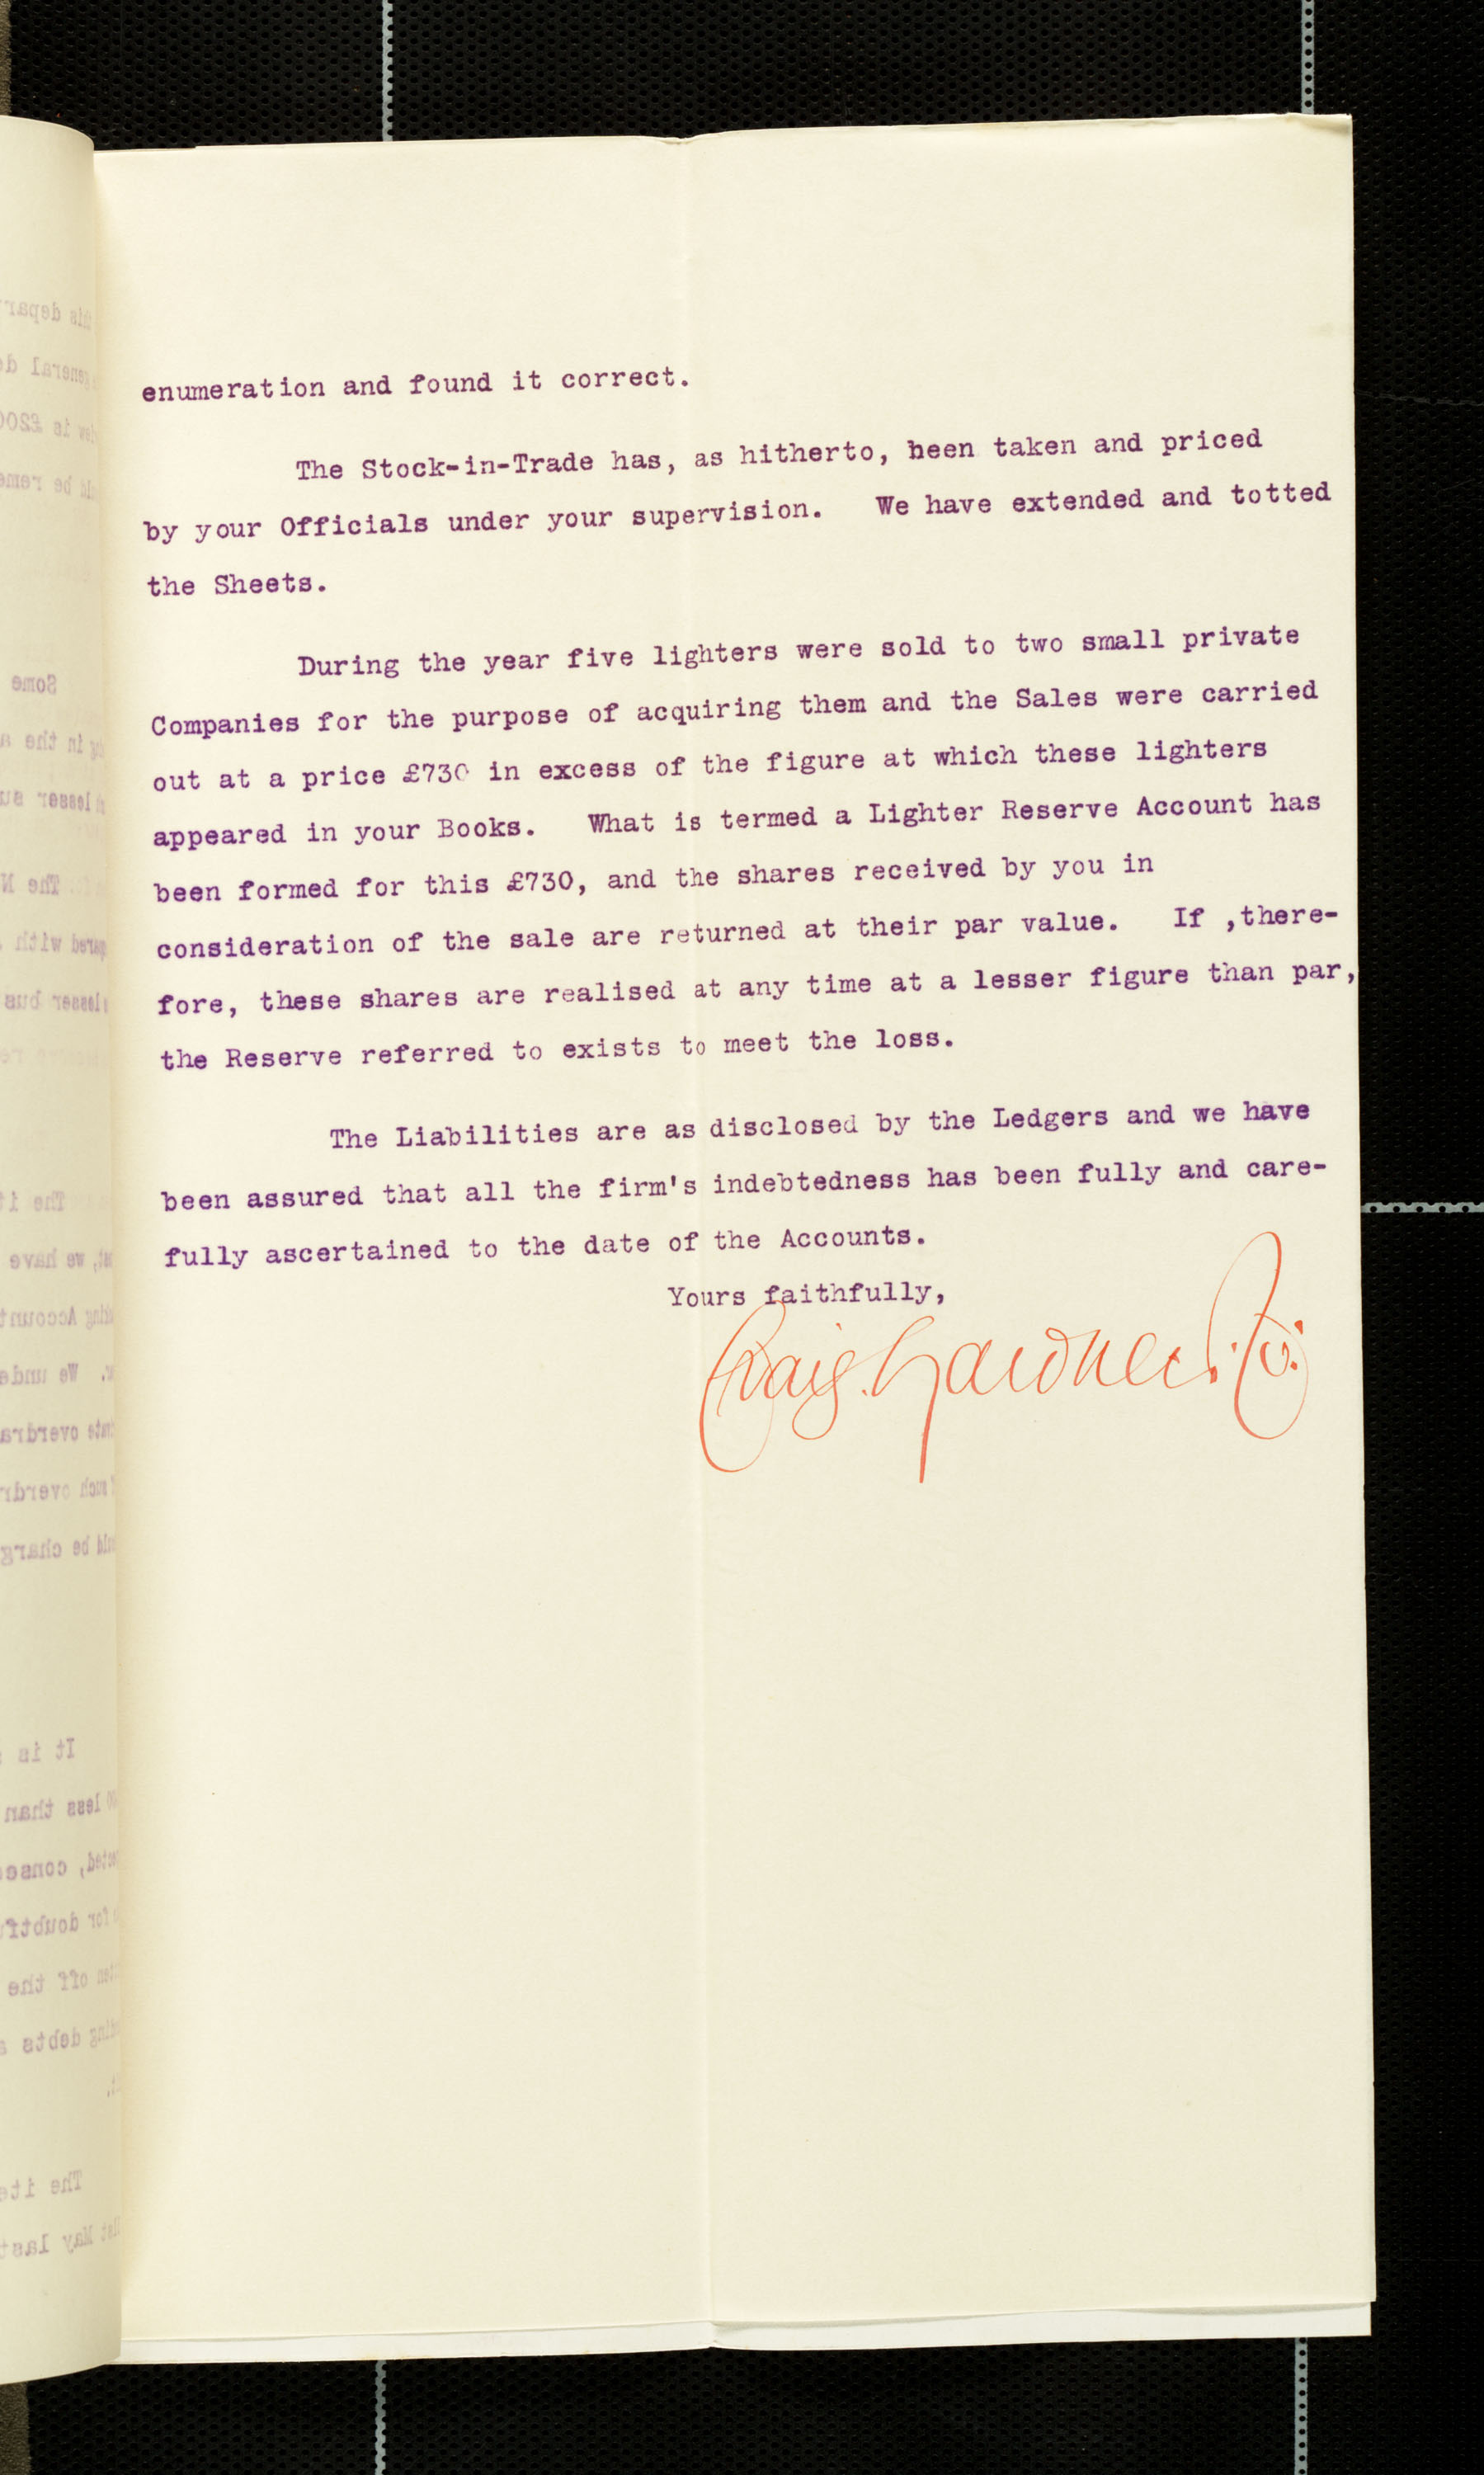 enumeration and found it correct.
The Stock-in-Trade has, as hitherto, been taken and priced
by your Officials under your supervision. We have extended and totted
the Sheets.
During the year five lighters were sold to two small private
Companies for the purpose of acquiring them and the Sales were carried
out at a price £730 in excess of the figure at which these lighters
appeared in your Books. What is termed a Lighter Reserve Account has
been formed for this £730, and the shares received by you in
consideration of the sale are returned at their par value. If ,there-
fore, these shares are realised at any time at a lesser figure than par,
the Reserve referred to exists to meet the loss.
The Liabilities are as disclosed by the Ledgers and we have
been assured that all the firm's indebtedness has been fully and care-
fully ascertained to the date of the Accounts.
Yours faithfully,
Craig. Gardner. & Co.